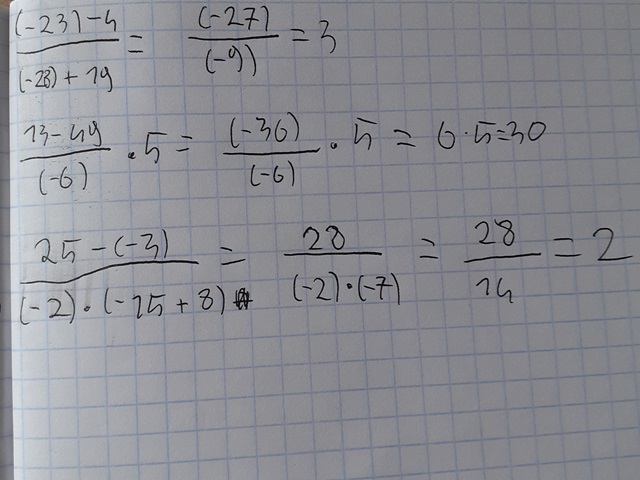 ((-23)-4)/((-28)+19) = (-27)/(-9)) = 3
(13-49)/(-6) · 5 = (-36)/(-6) · 5 = 6·5=30
(25-(-3))/((-2)·(-15+8)) = 28/((-2)·(-7)) = 28/14 = 2